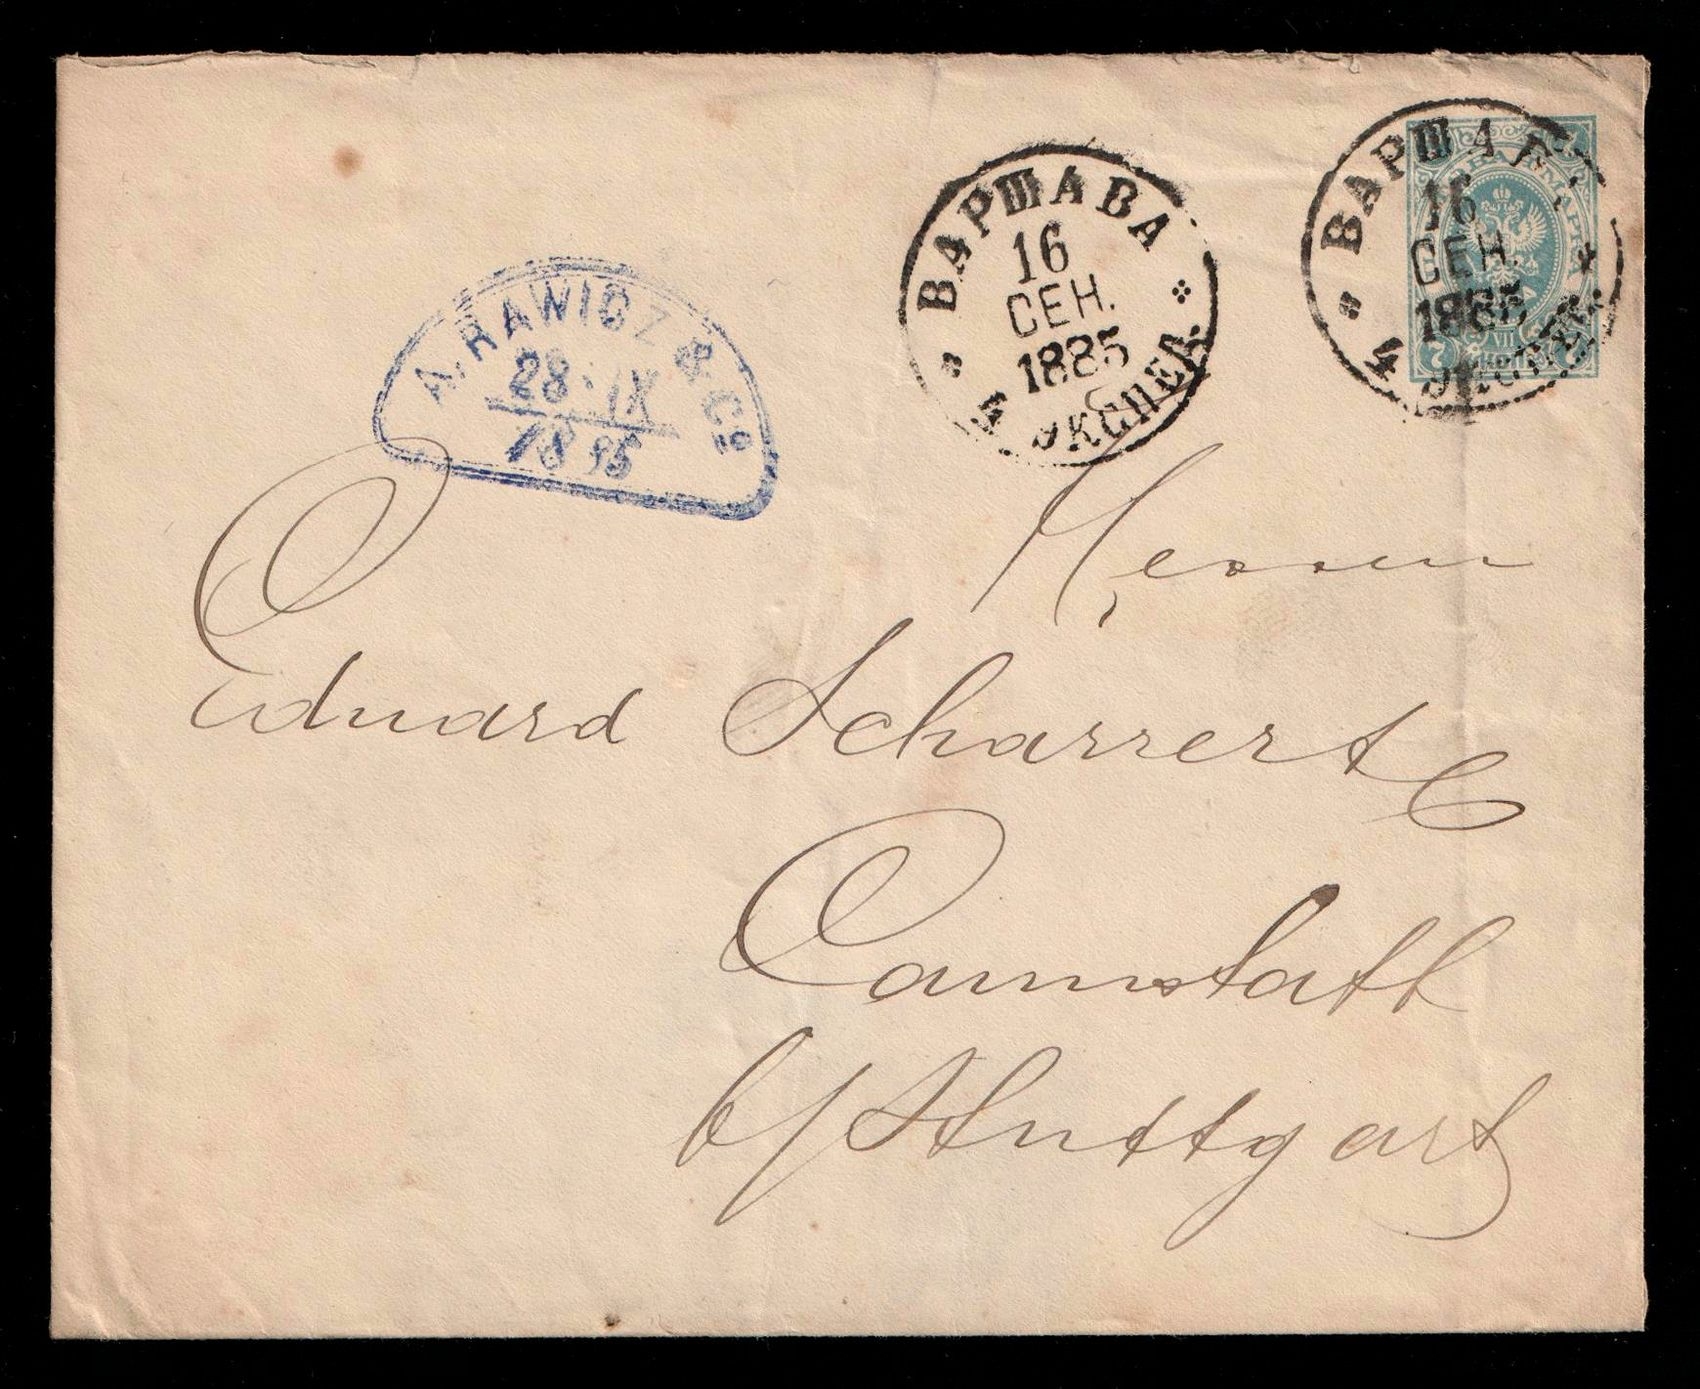 ВАРШАВА
16
СЕН.
1885
4 ЭКСПЕД.
ВАРШАВ
16
СЕН.
1885
4 ЭКСПЕД.
МАРКА
7
7
A. RAWICZ & Cº
28 IX
1885
Herrn
Eduard Scharrer
Cannstatt
b/Stuttgart